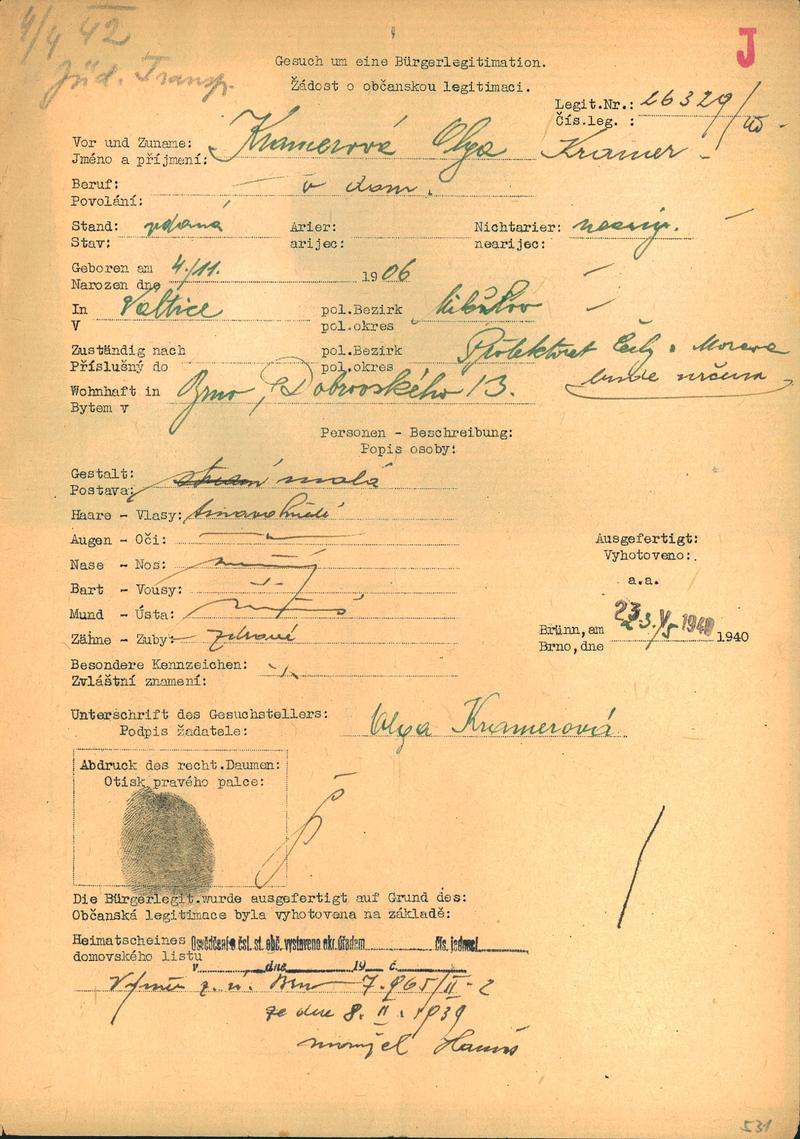 4/4 42
Jüd. Transp.
J
Gesuch um eine Bürgerlegitimation.
Žádost o občanskou legitimaci.
Legit.Nr.: 26329/
Čís.leg. :
Vor und Zuname: Kramerová Olga Kramer
Jméno a příjmení:
Beruf: v dom.
Povolání:
Stand: vdaná Arier: Nichtarier:
Stav: arijec: nearijec:
Geboren am 4./11. 1906
Narozen dne
In Valtice pol.Bezirk Mikulov
V pol.okres
Zuständig nach pol.Bezirk Protektorat Čechy a Morava
Příslušný do pol.okres bude určena
Wohnhaft in Brno, Dobrovského 13.
Bytem v
Personen - Beschreibung:
Popis osoby:
Gestalt: malá
Postava:
Haare - Vlasy: tmavohnědé
Augen - Oči:
Nase - Nos:
Bart - Vousy:
Mund - Ústa:
Zähne - Zuby: zdravé
Besondere Kennzeichen:
Zvláštní znamení:
Ausgefertigt:
Vyhotoveno:
a.a.
Brünn, am 23. V. 1940 23./5 1940
Brno, dne
Unterschrift des Gesuchstellers: Olga Kramerová
Podpis žadatele:
Abdruck des recht.Daumen:
Otisk pravého palce:
Die Bürgerlegit.wurde ausgefertigt auf Grund des:
Občanská legitimace byla vyhotovena na základě:
Heimatscheines Osvědčení o čsl. st. obč. vystaveno okr. úřadem čís. jednací
domovského listu v dne 19 č.
Výměr z. ú. Brno 7.965/II-2
ze dne 8. II. 1939
manžel Hanuš
531